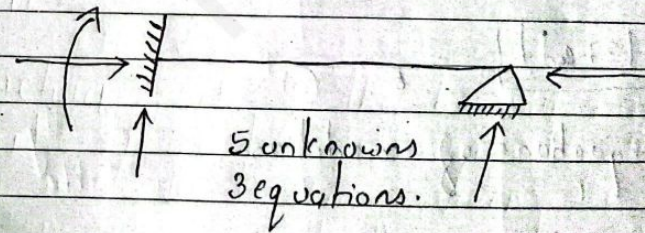 5 unknowns
3 equations.